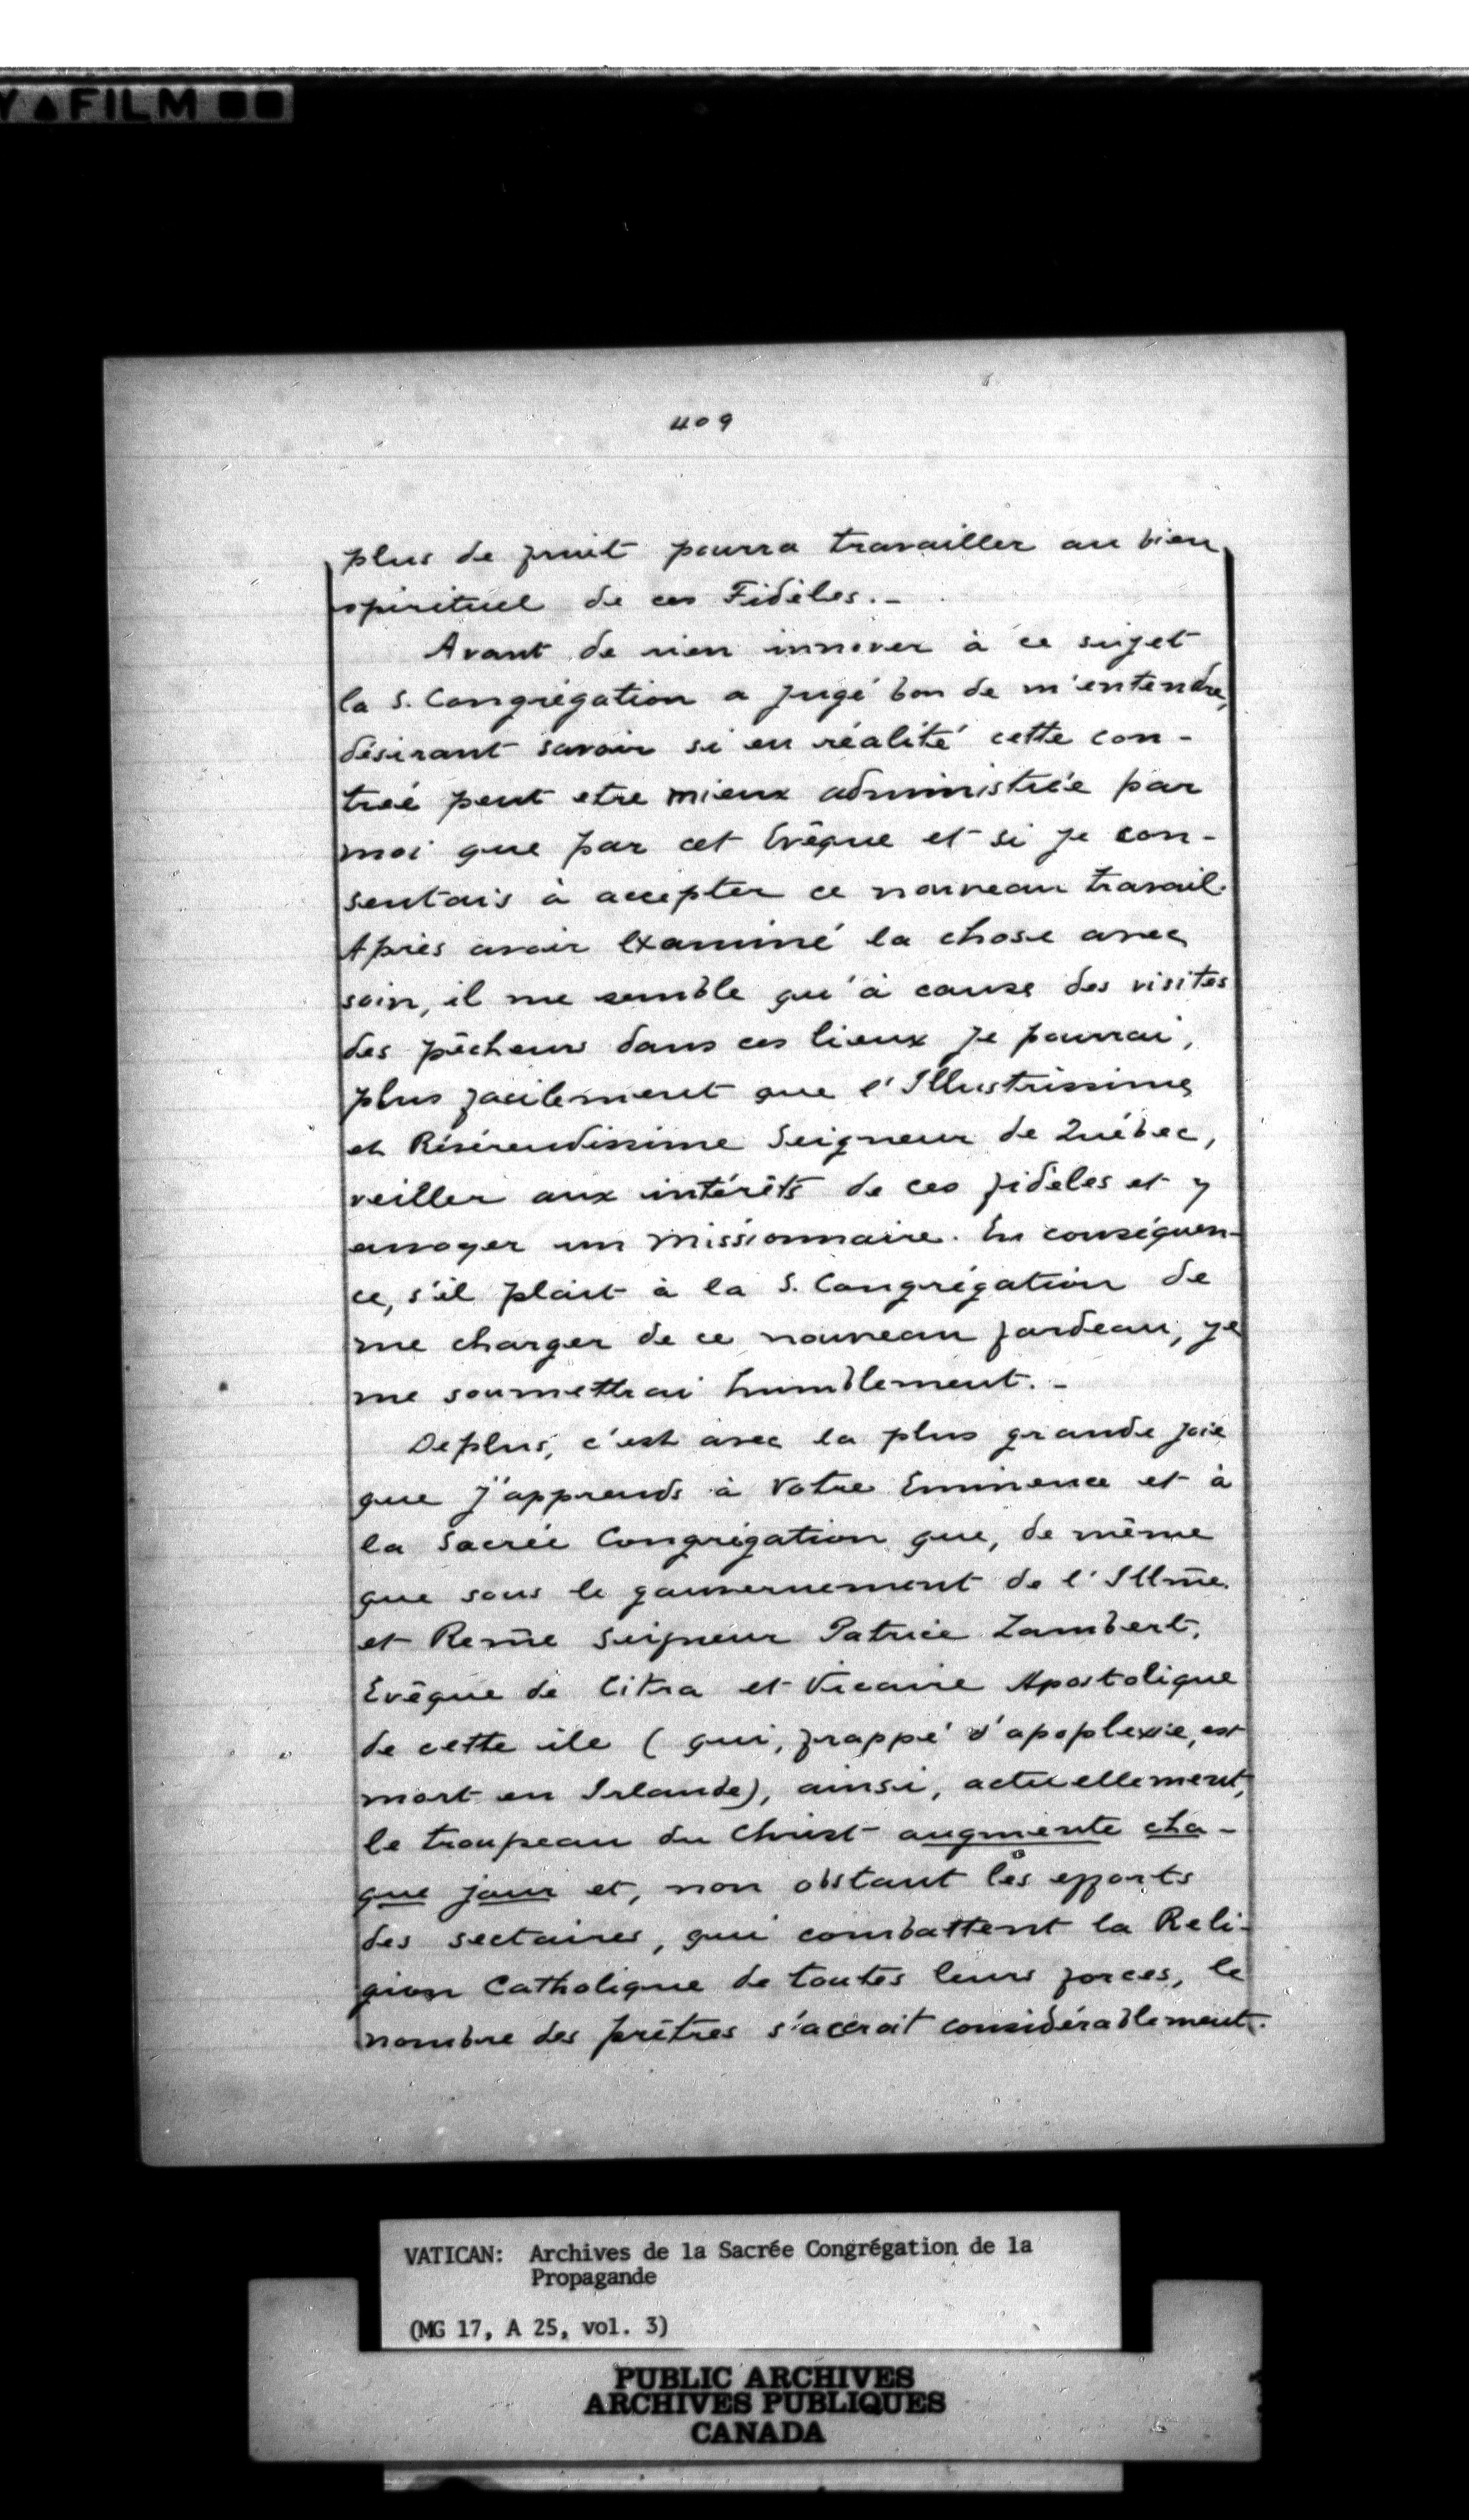 Y FILM
409
plus de fruit pourra travailler au bien
spirituel de ces Fidèles.-
Avant de rien innover à ce sujet
la S. Congrégation a jugé bon de m'entendre,
désirant savoir si en réalité cette con-
treé peut etre mieux administrée par
moi que par cet Evêque et si je con-
sentais à accepter ce nouveau travail.
Après avoir examiné la chose avec
soin, il me semble qu'à cause des visites
des pêcheurs dans ces lieux je pourrai,
plus facilement que l'Illustrissime
et Révérendissime Seigneur de Québec,
veiller aux intérêts de ces fidèles et y
envoyer un missionnaire. En conséquen-
ce, s'il plait à la S. Congrégation de
me charger de ce nouveau fardeau, je
me soumettrai humblement.-
Deplus, c'est avec la plus grande joie
que j'apprends à Votre Eminence et à
la Sacrée Congrégation que, de même
que sous le gouvernement de l'Illm̄e.
et Rem̄e Seigneur Patrice Lambert,
Evêque de Citra et Vicaire Apostolique
de cette ile (qui, frappé d'apoplexie, est
mort en Irlande), ainsi, actuellement,
le troupeau du Christ augmente cha-
que jour et, non obstant les efforts
des sectaires, qui combattent la Reli-
gion Catholique de toutes leurs forces, le
nombre des prêtres s'accroit considérablement.
VATICAN: Archives de la Sacrée Congrégation de la
Propagande
(MG 17, A 25, vol. 3)
PUBLIC ARCHIVES
ARCHIVES PUBLIQUES
CANADA